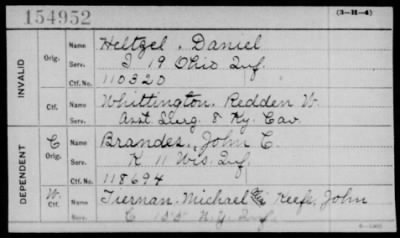 154952
(3-H-4)
INVALID
Orig.
Name Heltzel, Daniel
Serv. I 19 Ohio Inf.
Ctf. No. 110320
Ctf.
Name Whittington, Redden W.
Serv. Asst Surg. 8 Ky. Cav.
DEPENDENT
C
Orig.
Name Brandes, John C.
Serv. K 11 Wis. Inf.
Ctf. No. 118694
W.
Ctf.
Name Tiernan, Michael Keefe, John
Serv. C 155 N.Y. Inf.